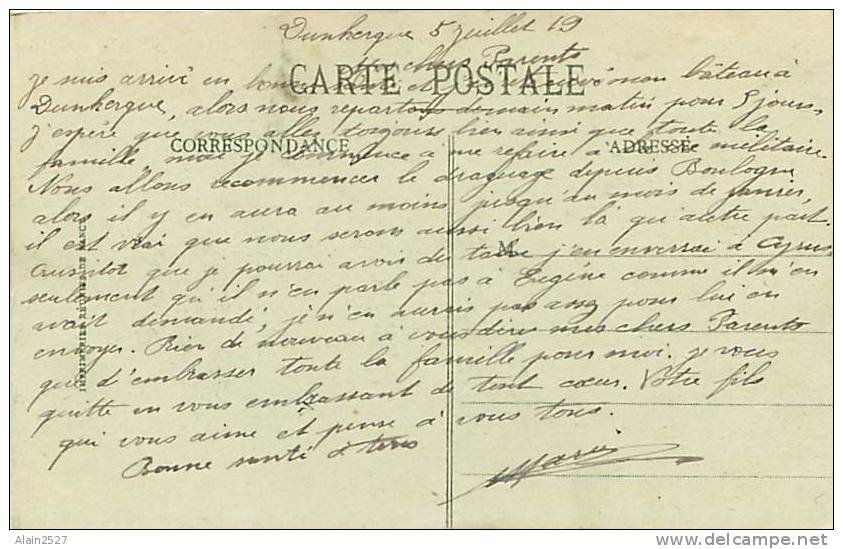 Dunkerque 5 juillet 19
chers Parents
CARTE POSTALE
je suis arrivé en bonne et mon bâteau à
Dunkerque, alors nous repartons demain matin pour 5 jours,
J'espère que vous allez toujours bien ainsi que toute la
CORRESPONDANCE
ADRESSE
famille, moi je commence à me refaire à la vie militaire.
Nous allons recommencer le draguage depuis Boulogne
alors il y en aura au moins jusqu'au mois de janvier,
il est vrai que nous serons aussi bien là qu'autre part.
M
aussitot que je pourrai avoir du tabac j'en enverrai à Cyrus
seulement qu'il n'en parle pas à Eugène comme il m'en
avait demandé, je n'en aurais pas assez pour lui en
envoyer. Rien de nouveau à vous dire mes chers Parents
que d'embrasser toute la famille pour moi. je vous
quitte en vous embrassant de tout cœur. Votre fils
qui vous aime et pense à vous tous.
Bonne santé à tous
Alain2527
delcampe.net